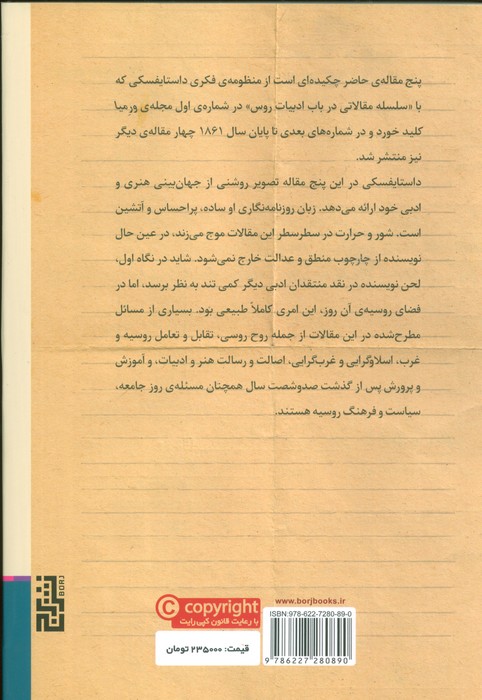 پنج مقاله‌ی حاضر چکیده‌ای است از منظومه‌ی فکری داستایفسکی که
با «سلسله مقالاتی در باب ادبیات روس» در شماره‌ی اول مجله‌ی ورمیا
کلید خورد و در شماره‌های بعدی تا پایان سال ۱۸۶۱ چهار مقاله‌ی دیگر
نیز منتشر شد.
داستایفسکی در این پنج مقاله تصویر روشنی از جهان‌بینی هنری و
ادبی خود ارائه می‌دهد. زبان روزنامه‌نگاری او ساده، پراحساس و آتشین
است. شور و حرارت در سطرسطر این مقالات موج می‌زند، در عین حال
نویسنده از چارچوب منطق و عدالت خارج نمی‌شود. شاید در نگاه اول،
لحن نویسنده در نقد منتقدان ادبی دیگر کمی تند به نظر برسد، اما در
فضای روسیه‌ی آن روز، این امری کاملاً طبیعی بود. بسیاری از مسائل
مطرح‌شده در این مقالات از جمله روح روسی، تقابل و تعامل روسیه و
غرب، اسلاوگرایی و غرب‌گرایی، اصالت و رسالت هنر و ادبیات، و آموزش
و پرورش پس از گذشت صدوشصت سال همچنان مسئله‌ی روز جامعه،
سیاست و فرهنگ روسیه هستند.
BORJ
www.borjbooks.ir
ISBN:978-622-7280-89-0
9 786227 280890
© copyright
با رعایت قانون کپی‌رایت
قیمت: ۲۳۵۰۰۰ تومان